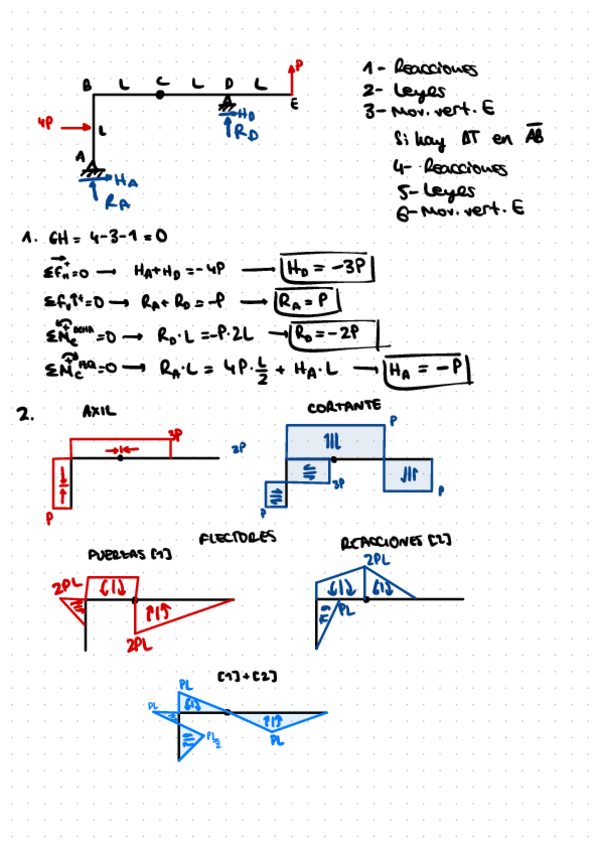 P
B L C L D L
E
4P
L
H_D
R_D
A
H_A
R_A
1- Reacciones
2- Leyes
3- Mov. vert. E
Si hay ΔT en AB
4- Reacciones
5- Leyes
6- Mov. vert. E
1. GH = 4-3-1 = 0
ΣF_H=0 → H_A+H_D = -4P → H_D = -3P
ΣF_V↑+=0 → R_A + R_D = -P → R_A = P
ΣM_C^DCHA=0 → R_D·L = -P·2L → R_D = -2P
ΣM_C^IZQ=0 → R_A·L = 4P·L/2 + H_A·L → H_A = -P
2. AXIL CORTANTE
3P
P
3P
P
3P
P
P
FLECTORES
FUERZAS [1] REACCIONES [2]
2PL
2PL
2PL
PL
[1]+[2]
PL
PL
PL/2
PL